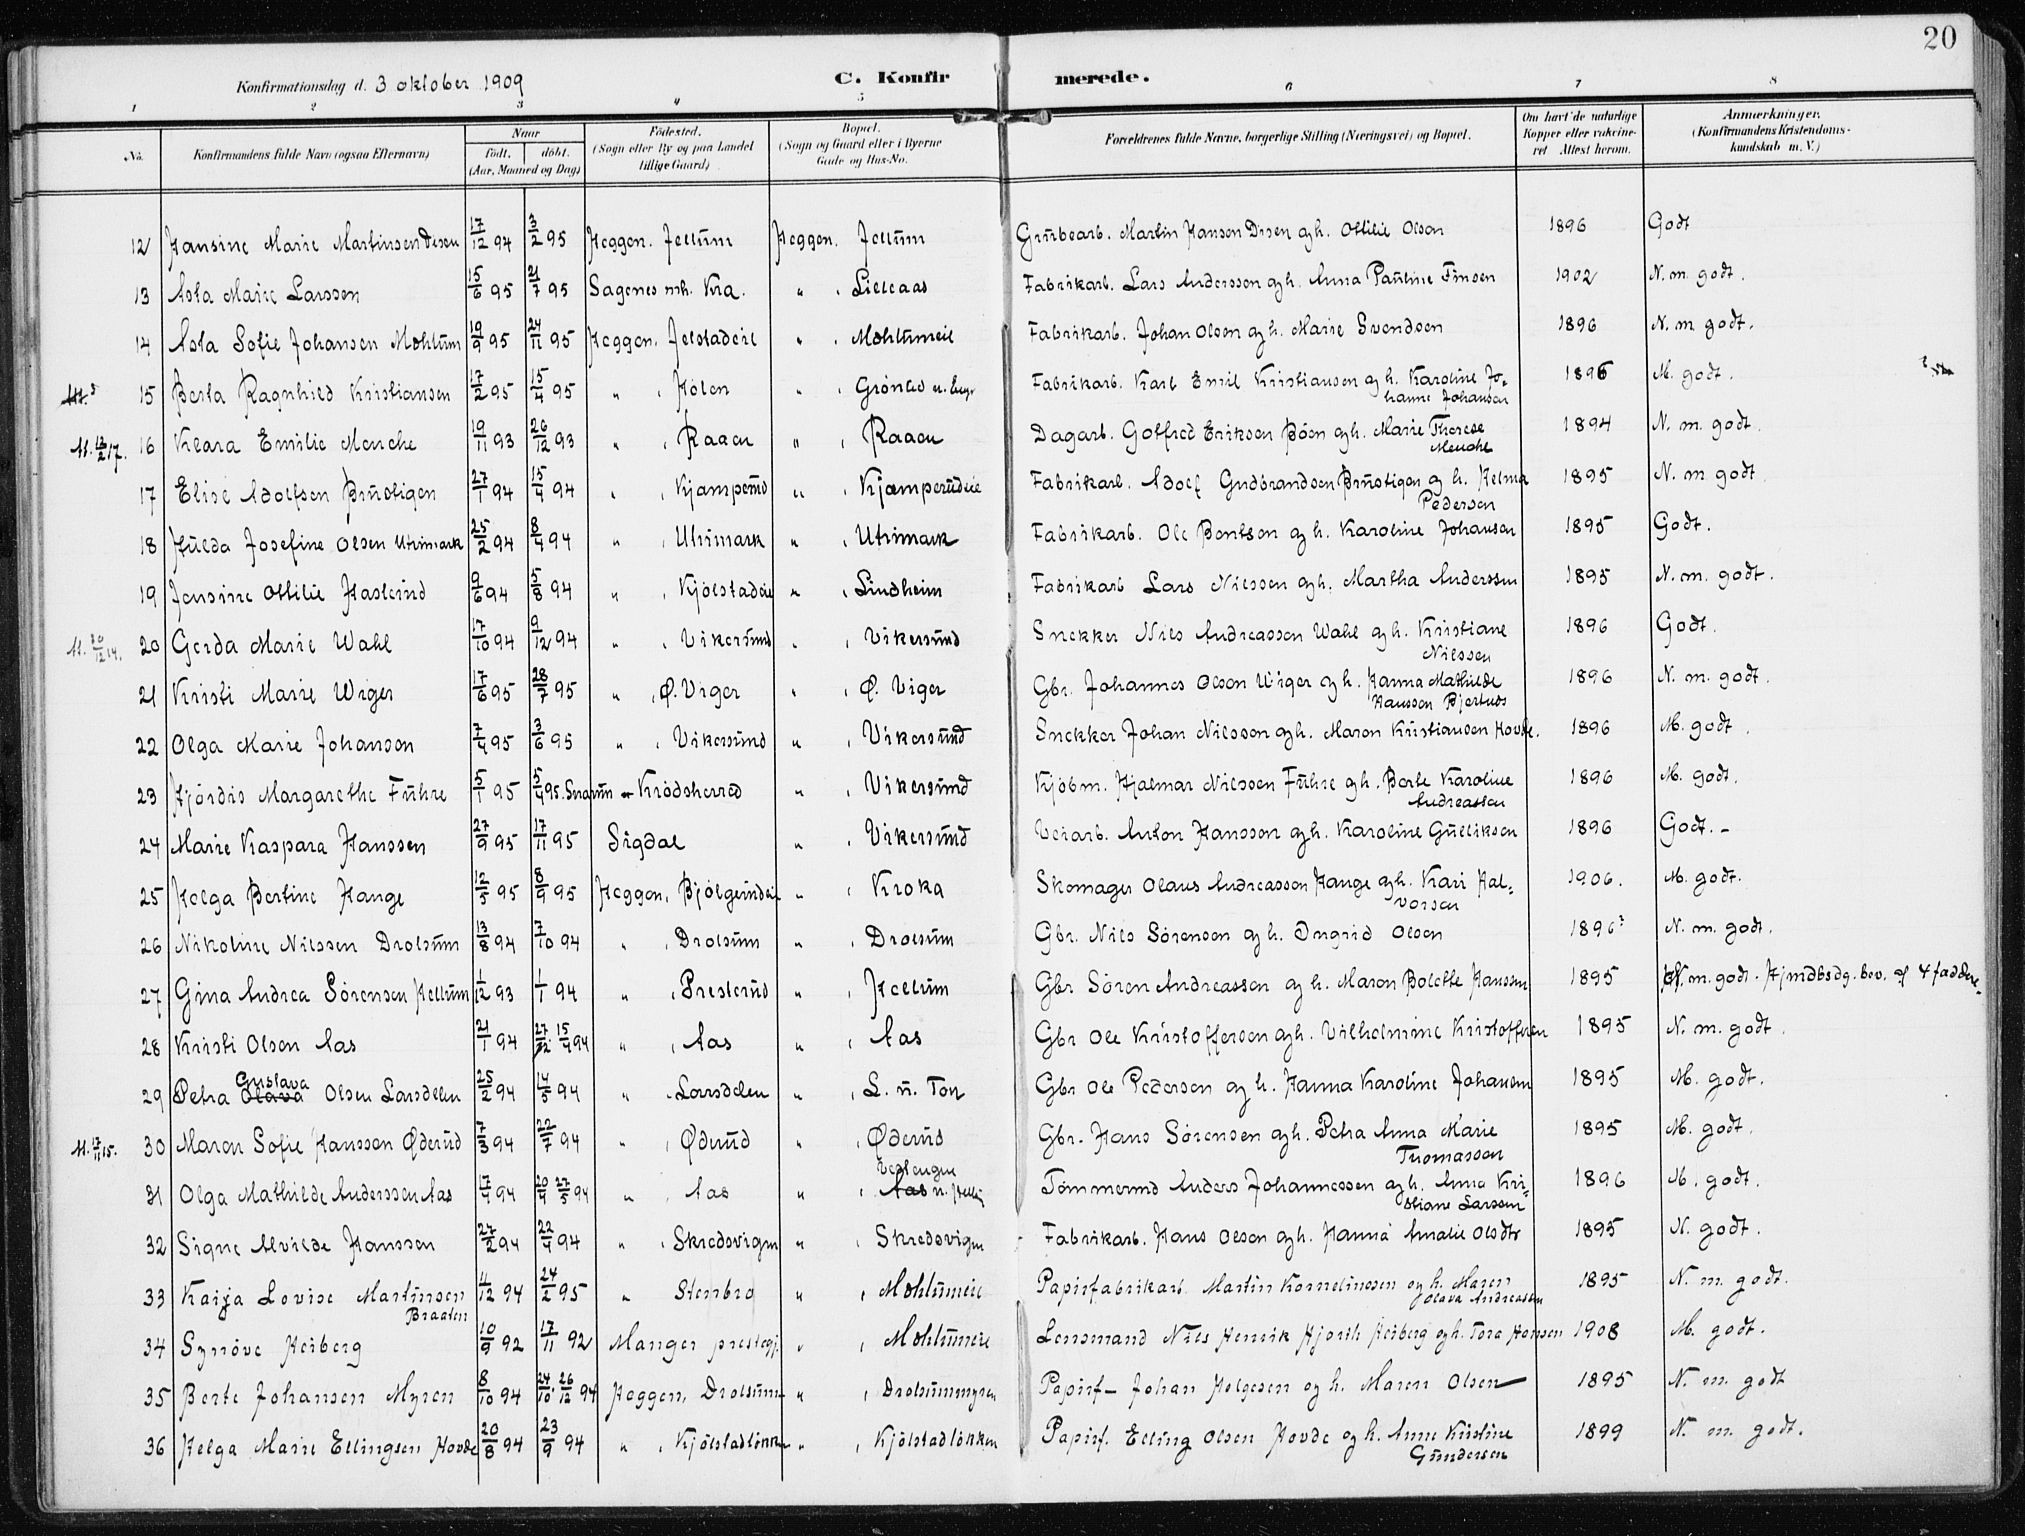 20
Konfirmationsdag d. 3 oktober 1909
C. Konfirmerede.
1 2 3 4 5 6 7 8
No. Konfirmandens fulde Navn (ogsaa Efternavn) Naar födt. döbt. (Aar, Maaned og Dag) Födested. (Sogn eller By og paa Landet tillige Gaard) Bopæl. (Sogn og Gaard eller i Byerne Gade og Hus-No. Forældrenes fulde Navne, borgerlige Stilling (Næringsvei) og Bopæl. Om havt de naturlige Kopper eller vaccineret Attest herom. Anmærkninger. (Konfirmandens Kristendomskundskab m. V.)
12 Hansine Marie Martinsen Disen 17/12 94 3/2 95 Heggen. Jellum Heggen. Jellum Grubearb. Martin Hansen Disen og h. Ottilie Olsen 1896 Godt
13 Asta Marie Larssen 15/6 95 21/7 95 Sagenes mh. Kra. " . Lilleaas Fabrikarb. Lars Anderssen og h. Anna Pauline Finsen 1902 N. m. godt.
14 Asta Sofie Johansen Mohlum 19/9 95 24/11 95 Heggen. Jelstadeie " . Mohlumeie Fabrikarb. Johan Olsen og h. Marie Svendsen 1896 N. m godt.
15 Berta Ragnhild Kristiansen 17/2 95 15/4 95 " . Hølen " . Grønlid Fabrikarb. Karl Emil Kristiansen og h. Karoline Johanne Johansen 1896 M. godt.
M. 17. 16 Klara Emilie Menche 19/11 93 26/12 93 " . Raaen " . Raaen Dagarb. Gotfred Eriksen Bøen og h. Marie Therese Menche 1894 N. m. godt.
17 Elise Adolfsen Brustigen 27/1 94 15/4 94 " . Kjamperud " . Kjamperudeie Fabrikarb. Adolf Gudbrandsen Brustigen og h. Helma Pedersen 1895 N. m godt
18 Hulda Josefine Olsen Utrimark 25/2 94 8/4 94 " . Utrimark " . Utrimark Fabrikarb. Ole Berntsen og h. Karoline Johansen 1895 Godt.
19 Jensine Ottilie Hasleind 9/6 94 5/8 94 " . Kjölstadeie " . Lindheim Fabrikarb Lars Nilssen og h. Martha Anderssen 1895 N. m. godt.
M. 20/12 14. 20 Gerda Marie Wahl 17/10 94 9/12 94 " . Vikersund " . Vikersund Snekker Nils Andreassen Wahl og h. Kristiane Nilssen 1896 Godt.
21 Kristi Marie Wiger 17/6 95 28/7 95 " . Ø. Viger " . Ø. Viger Gbr. Johannes Olsen Wiger og h. Hanna Mathilde Hanssen Bjertnes 1896 N. m. godt.
22 Olga Marie Johansen 7/4 95 3/6 95 " . Vikersund " . Vikersund Snekker Johan Nilssen og h. Maren Kristiansen Hovde. 1896 M. godt.
23 Hjördis Margarethe Fuhre 5/1 95 5/4 95. Snarum - Krödsherred " . Vikersund Kjöbm. Hjalmar Nilssen Fuhre og h. Berte Karoline Andreassen 1896 M. godt.
24 Marie Kaspara Hanssen 27/9 95 17/11 95 Sigdal " Vikersund Veiarb. Anton Hanssen og h. Karoline Gulliksen 1896 Godt. -
25 Helga Bertine Hange 12/5 95 8/9 95 Heggen. Bjölgerudeie " . Kroka Skomager Olaus Andreassen Hange og h. Kari Halvorsen 1906. M. godt.
26 Nikoline Nilssen Drolsum 13/8 94 7/10 94 " . Drolsum " . Drolsum Gbr. Nils Sörensen og h. Ingrid Olsen 1896? N. m. godt.
27 Gina Andrea Sörensen Hellum 1/12 93 1/1 94 " . Presterud " . Hellum Gbr Sören Andreassen og h. Maren Bolette Hanssen 1895 N. m. godt. Hjmdbsdg. bev. af 4 faddere.
28 Kristi Olsen Aas 21/1 94 15/4 94 " . Aas " . Aas Gbr Ole Kristoffersen og h. Vilhelmine Kristoffersen 1895 N. m. godt.
29 Petra Gustava Olava Olsen Larsdelen 25/2 94 14/5 94 " . Larsdelen " . L. u. Ton Gbr Ole Pedersen og h. Hanna Karoline Johansen 1895 M. godt.
M. 17/11 15. 30 Maren Sofie Hanssen Øderud 7/3 94 22/7 94 " . Øderud " . Øderud Gbr. Hans Sörensen og h. Petra Anna Marie Thomassen 1895 M. godt.
31 Olga Mathilde Anderssen Aas 17/4 94 20/4 27/5 94 " . Aas " . Aas Tömmermd Anders Johannessen og h. Anna Kristiane Larssen 1896 M. godt.
32 Signe Alvilde Hanssen 27/2 94 22/4 94 " . Skredsvigen " . Skredsvigen Fabrikarb. Hans Olsen og h. Hanna Amalie Olsdtr 1895 N. godt.
33 Kaija Lovise Martinsen Braaten 4/12 94 24/2 95 " Stenbro " . Mohlumeie Papirfabrikarb. Martin Korneliussen og h. Maren Olava Andreassen 1895 N. m. godt.
34 Synöve Heiberg 10/9 92 17/11 92 Manger prestegj. " . Mohlumeie Lensmand Nils Henrik Hjorth Heiberg og h. Tora Hansen 1908 M. godt.
35 Berte Johansen Myren 8/10 94 24/10. 26/12 94 Heggen, Drolsum " . Drolsummyren Papirf- Johan Helgesen og h. Maren Olsen 1895 N. m. godt
36 Helga Marie Ellingsen Hovde 20/8 94 23/9 94 " . Kjölstadlökken " . Kjölstadlökken Papirf. Elling Olsen Hovde og h. Anne Kristine Gundersen 1899 N. m. godt.